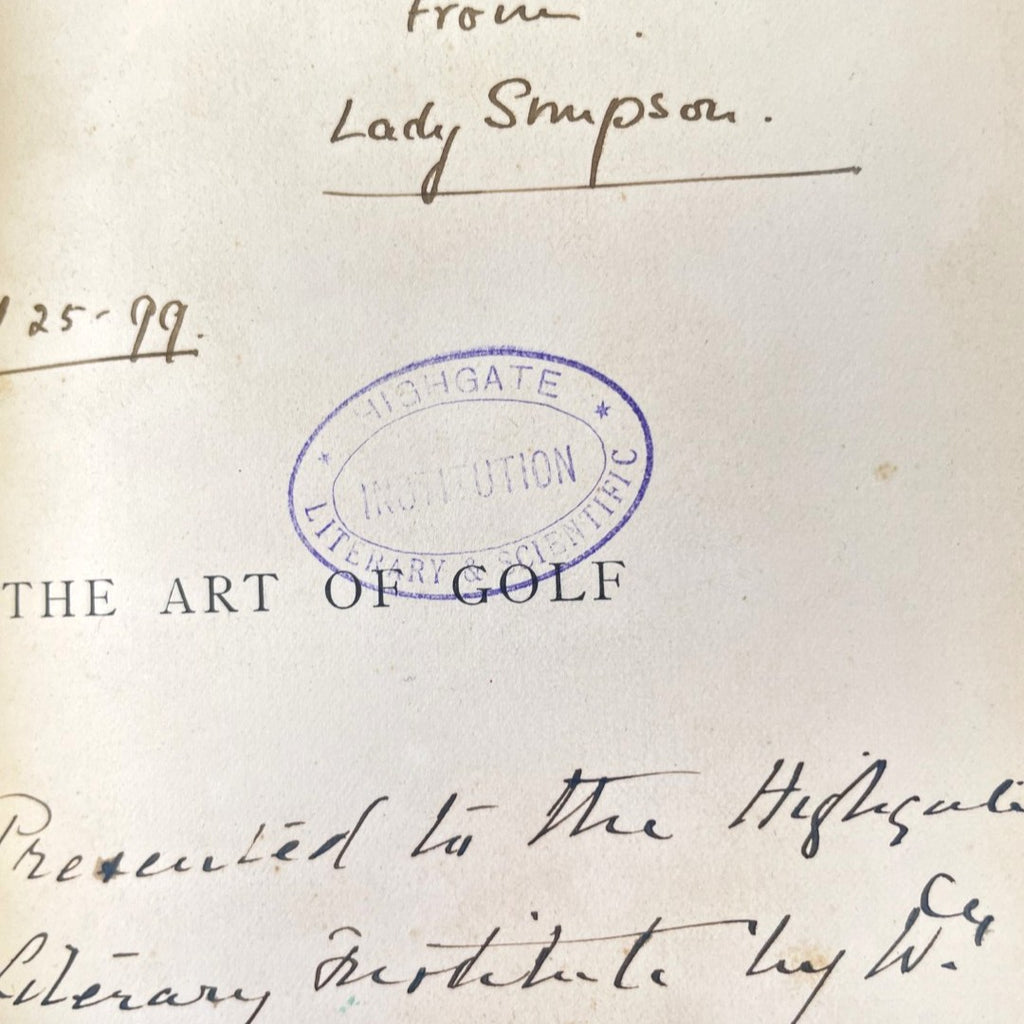 from
Lady Simpson.
25-99.
HIGHGATE
INSTITUTION
LITERARY & SCIENTIFIC
THE ART OF GOLF
Presented to the Highgate
Literary Institute by W.